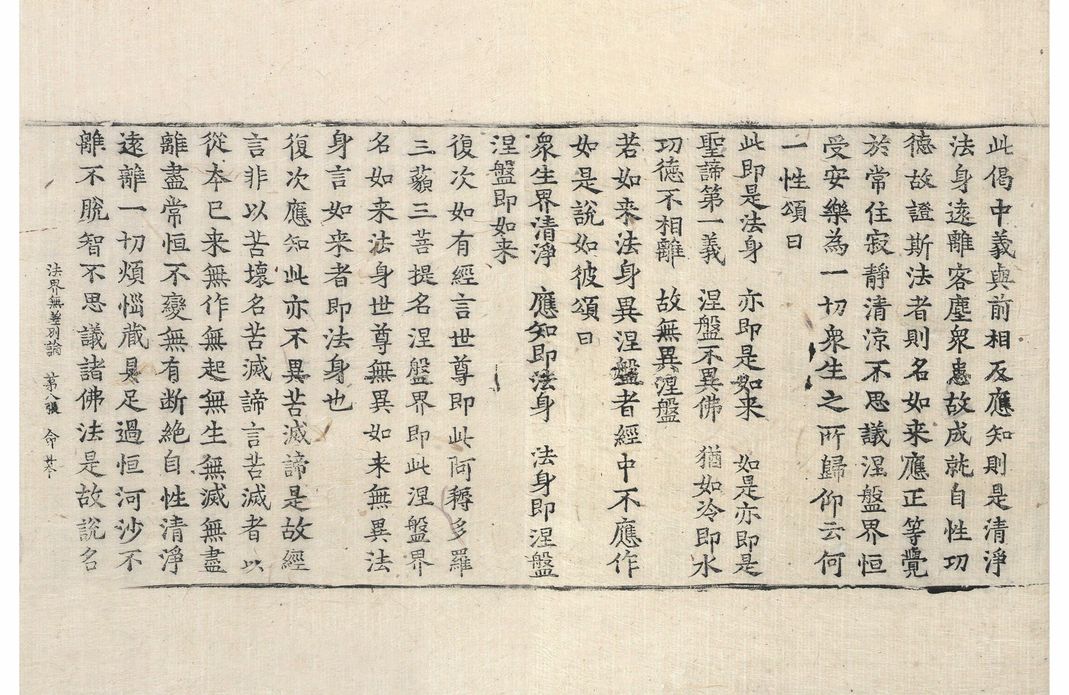 此偈中義與前相反應知則是清淨
法身遠離客塵衆患故成就自性功
德故證斯法者則名如来應正等覺
於常住寂靜清涼不思議涅盤界恒
受安樂為一切衆生之所歸仰云何
一性頌曰
此即是法身　亦即是如来　如是亦即是
聖諦第一義　涅盤不異佛　猶如冷即水
功德不相離　故無異涅盤
若如来法身異涅盤者經中不應作
如是說如彼頌曰
衆生界清淨　應知即法身　法身即涅盤
涅盤即如来
復次如有經言世尊即此阿耨多羅
三藐三菩提名涅盤界即此涅盤界
名如来法身世尊無異如来無異法
身言如来者即法身也
復次應知此亦不異苦滅諦是故經
言非以苦壞名苦滅諦言苦滅者以
從本已来無作無起無生無滅無盡
離盡常恒不變無有断絶自性清淨
遠離一切煩惱蔵具足過恒河沙不
離不脫智不思議諸佛法是故說名
法界無差別論　第八張　命